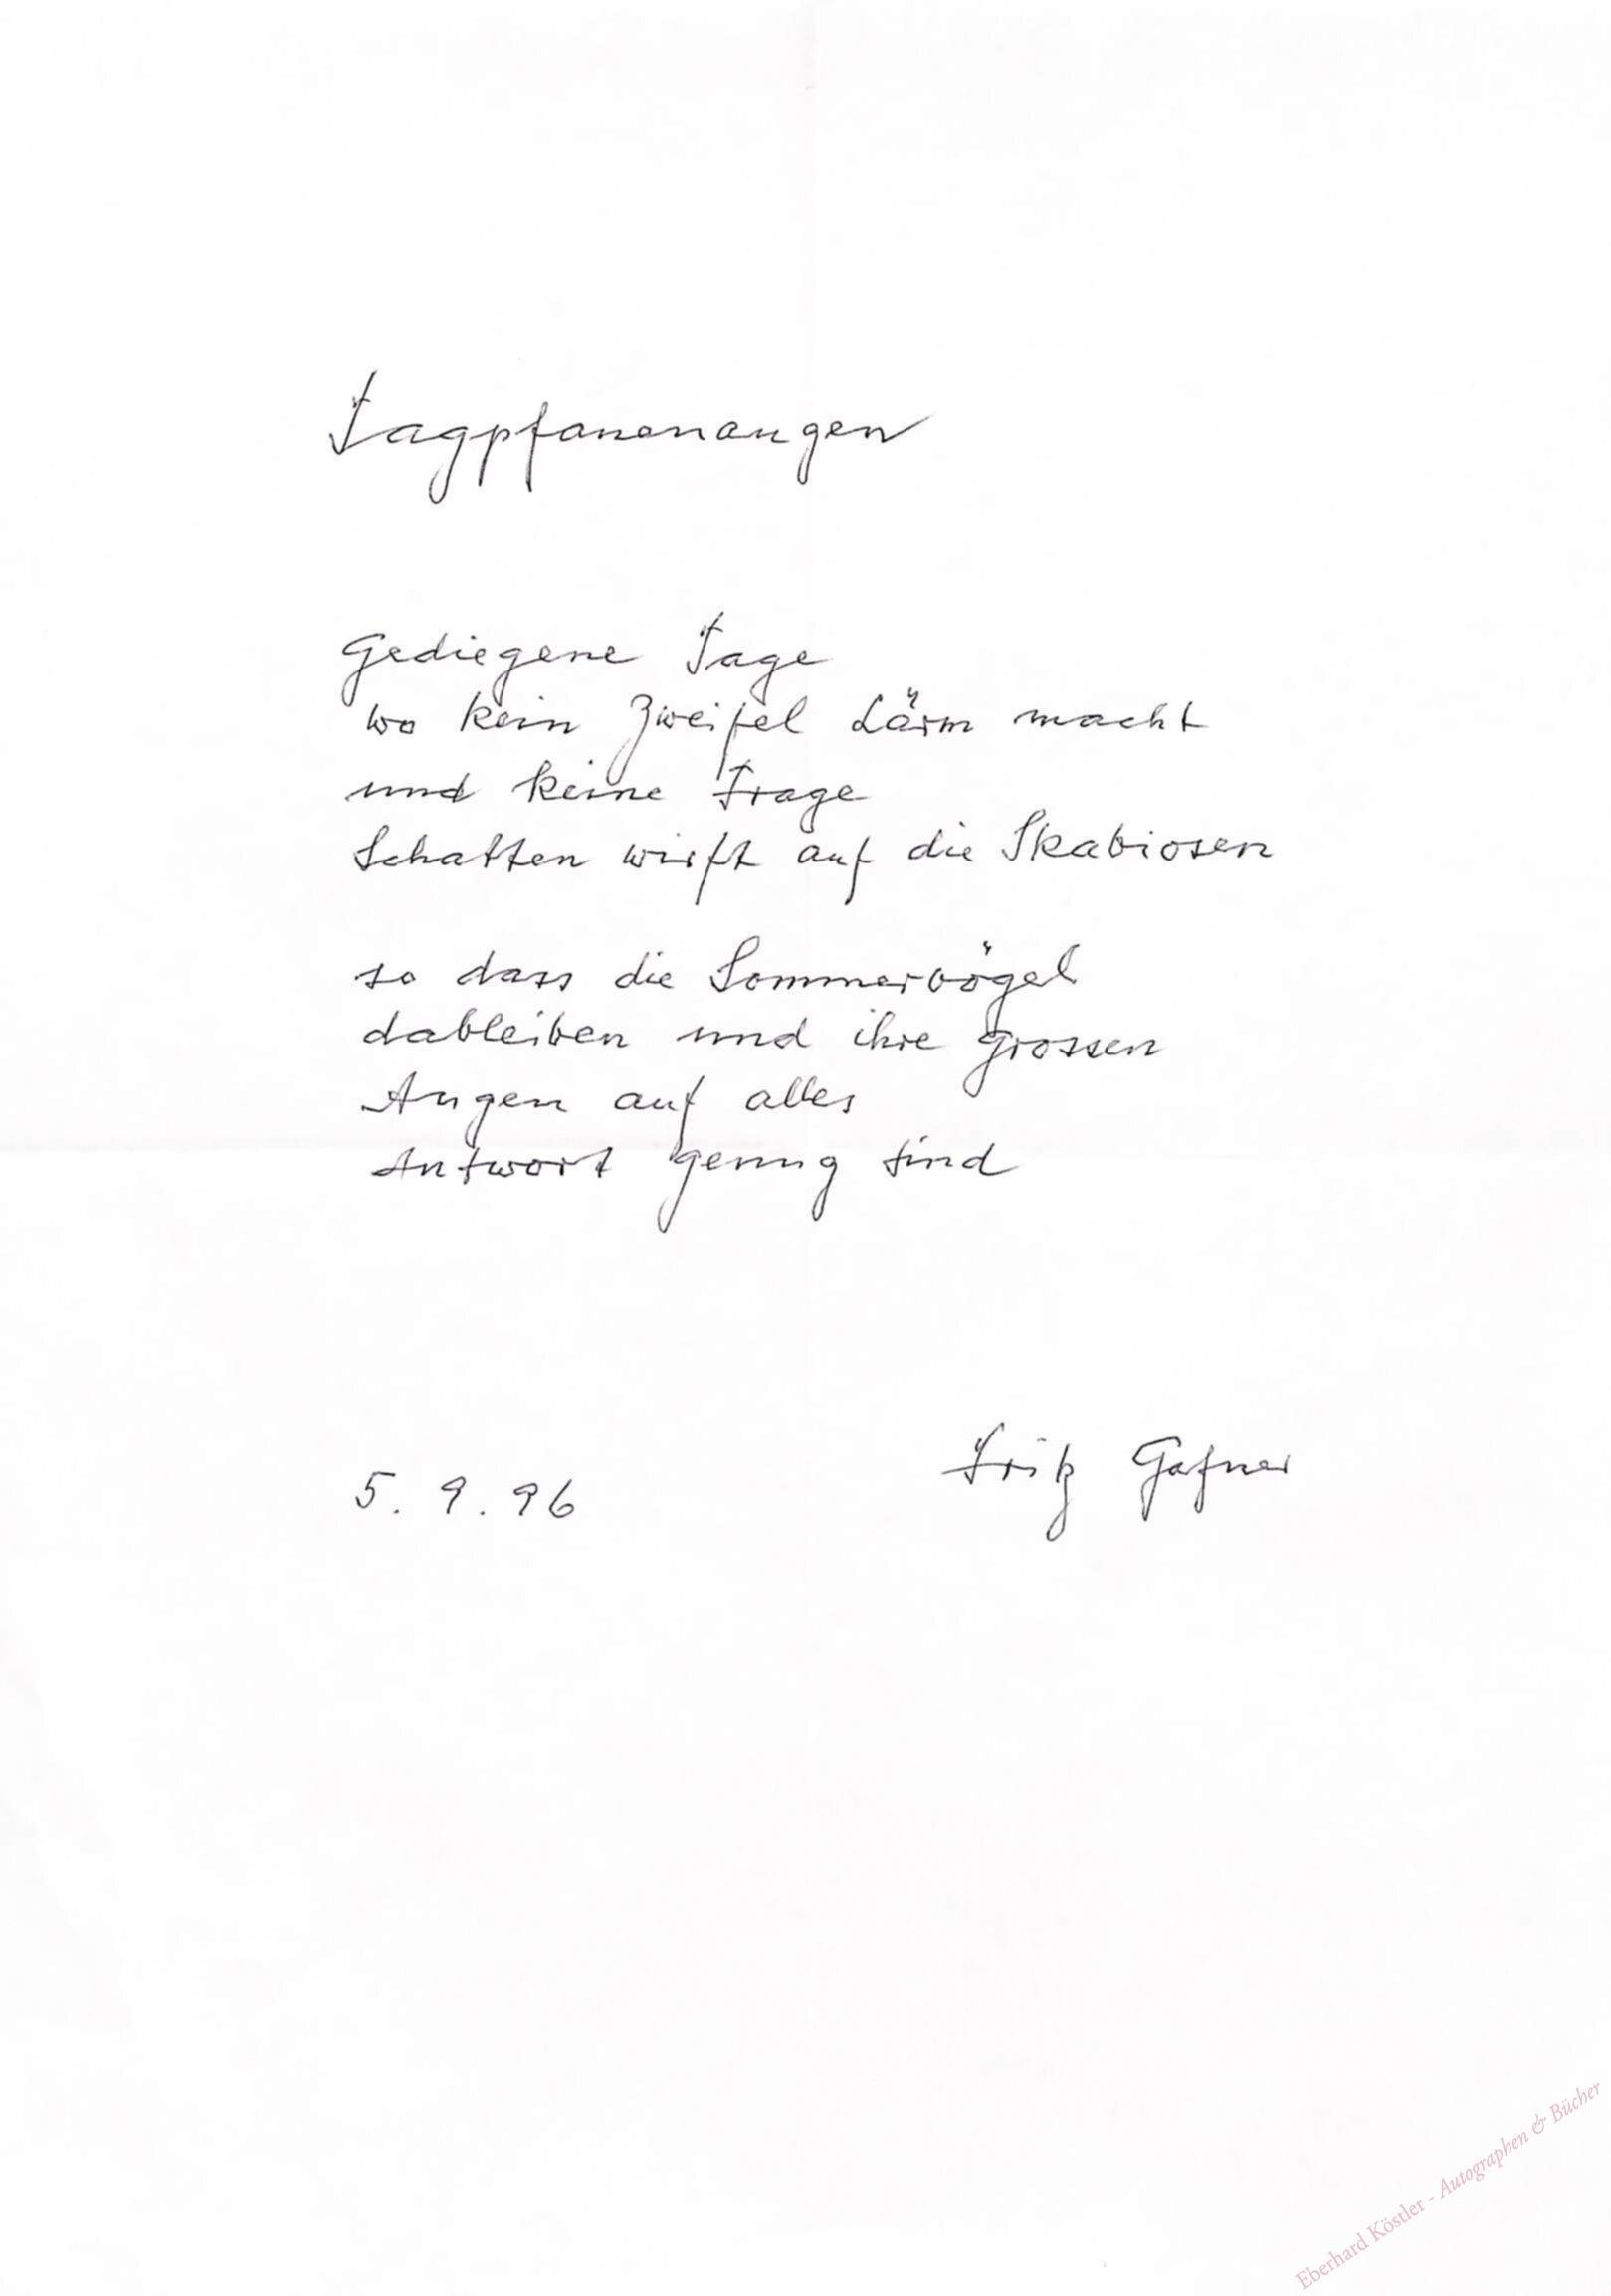 Tagpfauenaugen
Gediegene Tage
wo kein Zweifel Lärm macht
und keine Frage
Schatten wirft auf die Skabiosen
so dass die Sommervögel
dableiben und ihre grossen
Augen auf alles
Antwort genug sind
5. 9. 96
Fritz Gafner
Eberhard Köstler - Autographen & Bücher